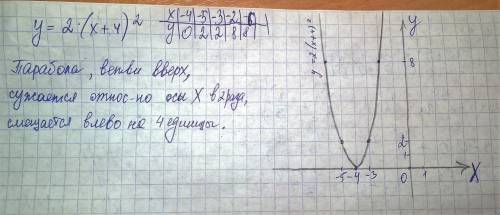 y = 2·(x+4)²
x | -4 | -5 | -3 | -2 | -6
y | 0 | 2 | 2 | 8 | 8
Парабола, ветви вверх,
сужается относ-но осы X в 2 раза,
смещается влево на 4 единицы.
y = 2(x+4)²
y
8
2
1
-5 -4 -3 0 1 X